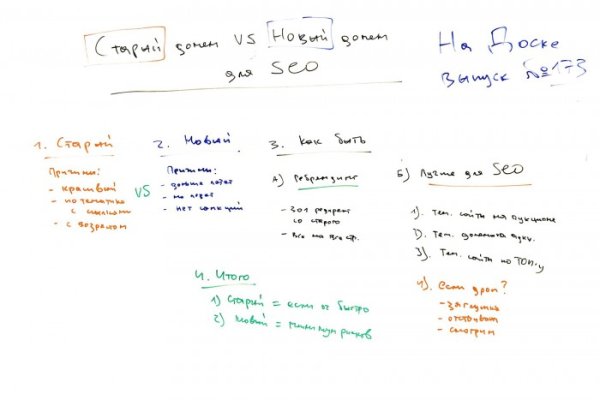 Старый домен VS Новый домен
для SEO
На Доске
выпуск №173
1. Старый
Причины:
- красивый
- по тематике
с ссылками
- с возрастом
VS
2. Новый
Причины:
- дольше
- нет санкций
3. Как быть
А) Ребрендинг
- 301 редирект
со старого
- все на все стр.
Б) Лучше для SEO
1). Тем. сайты на аукционе
2). Тем. домены аукц.
3). Тем. сайты по ТОП-у
4). Если дроп?
- загрузка
- отстаиваем
- смотрим
4. Итого
1) Старый = если оч быстро
2) Новый = минимум рисков